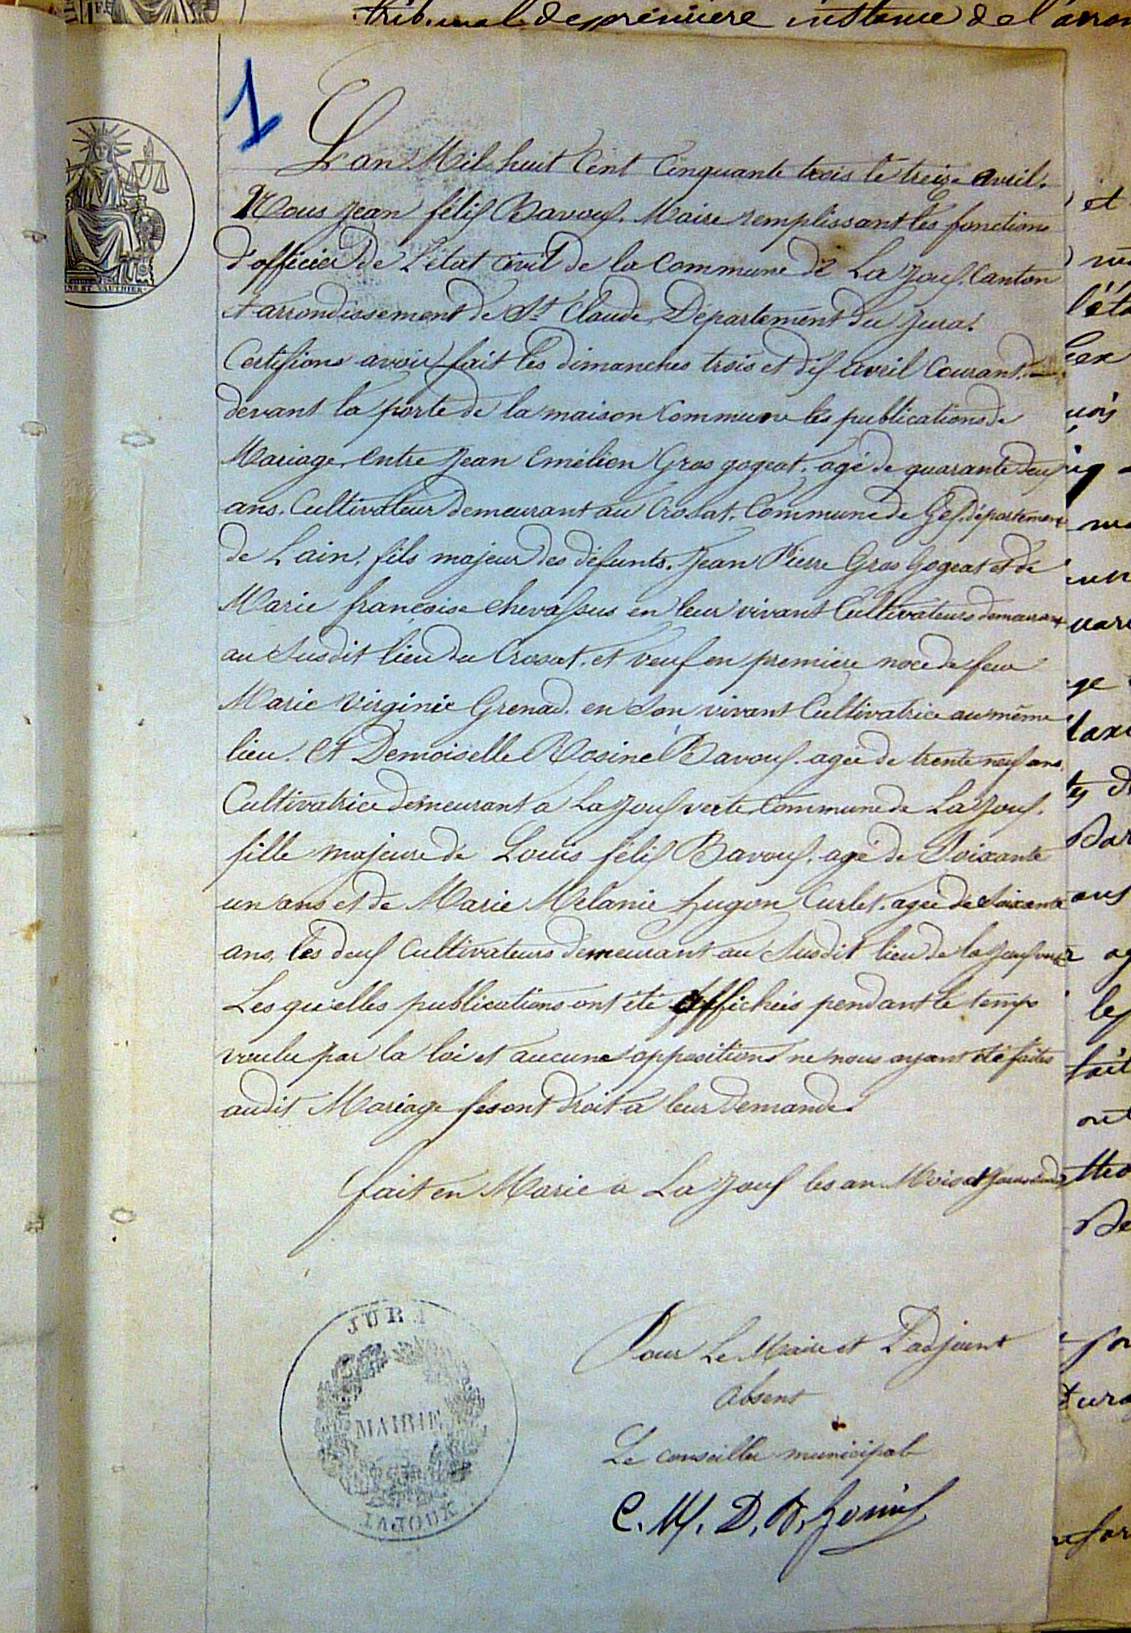 tribunal de première instance de l'arron
1
L'an Mil huit Cent Cinquante trois le treize avril.
Nous Jean félix Bavoux. Maire remplissant les fonctions
d'officier de L'état Civil de la Commune de La Joux. Canton
et arrondissement de St Claude, Département du Jura.
Certifions avoir fait les dimanches trois et dix avril Courant.
devant la porte de la maison Commune les publications de
Mariage, Entre Jean Emélien Gros gogeat. agé de quarante deux
ans. Cultivateur demeurant au Crosat. Commune de Gex. département
de Lain. fils majeur des défunts. Jean Pierre Gros Gogeat et de
Marie françoise Chevassus en leur vivant Cultivateurs demeurant
au Susdit lieu du Crosat. et veuf en premiere noce de feue
Marie Virginie Grenad. en Son vivant Cultivatrice au même
lieu. Et Demoiselle Rosine Bavoux. agée de trente neuf ans.
Cultivatrice demeurant a La Joux verte Commune de La Joux.
fille majeure de Louis félix Bavoux. agé de Soixante
un ans et de Marie Mélanie hugon Curlet. agée de Soixante
ans, les deux Cultivateurs demeurant au Susdit lieu de la Joux verte
Les quelles publications ont été affichées pendant le temps
voulu par la loi et aucune opposition ne nous ayant été faites
audit Mariage fesont droit a leur demande.
fait en Marie a La Joux les an Mois et Jour
JURA
MAIRIE
LAJOUX
Pour Le Maire et L'adjoint
Absent
Le conseiller municipal
C. M. D.